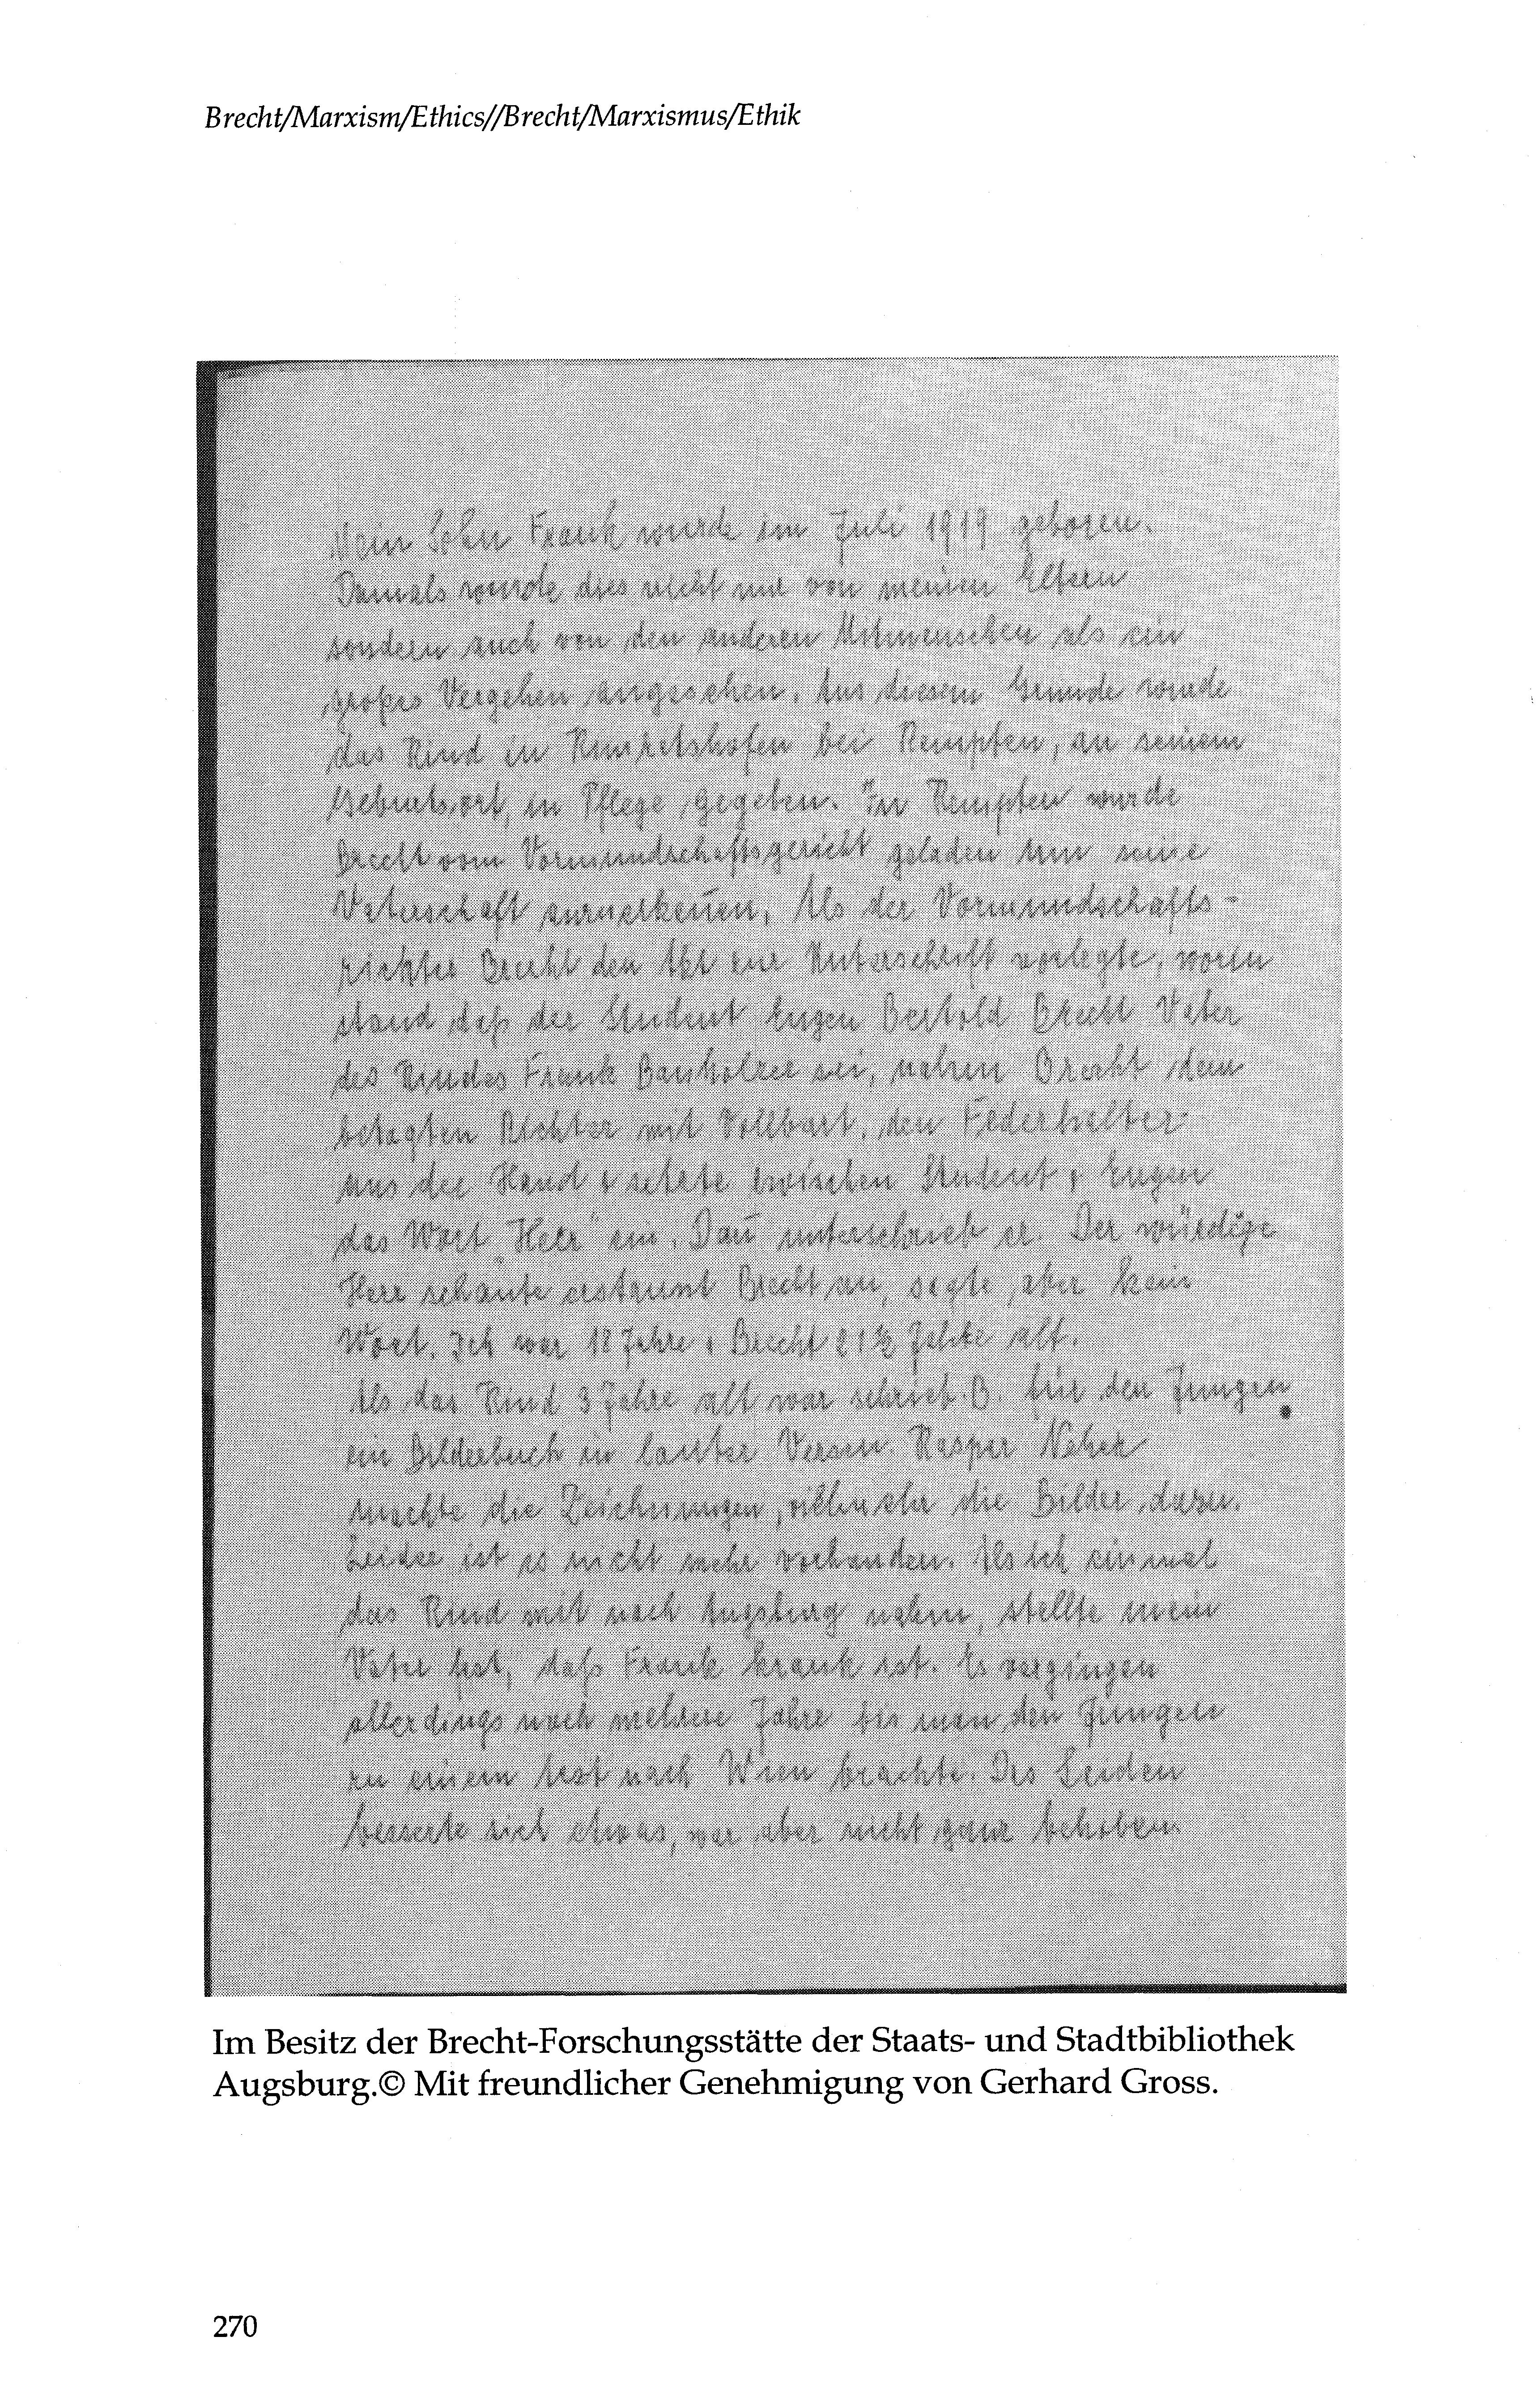 Brecht/Marxism/Ethics//Brecht/Marxismus/Ethik
Mein Sohn Frank wurde im Juli 1919 geboren.
Damals wurde dies nicht nur von meinen Eltern
sondern auch von den anderen Mitmenschen als ein
großes Vergehen angesehen. Aus diesem Grunde wurde
das Kind in Kimratshofen bei Kempten, an seinem
Geburtsort, in Pflege gegeben. In Kempten wurde
Brecht vom Vormundschaftsgericht geladen um seine
Vaterschaft anzuerkeñen. Als der Vormundschafts-
richter Brecht den Akt zur Unterschrift vorlegte, worin
stand daß der Student Eugen Bertold Brecht Vater
des Kindes Frank Banholzer sei, nahm Brecht dem
betagten Richter mit Vollbart, den Federhalter
aus der Hand & setzte zwischen Student & Eugen
das Wort "Herr" ein. Dañ unterschrieb er. Der würdige
Herr schaute erstaunt Brecht an, sagte aber kein
Wort. Ich war 18 Jahre & Brecht 21½ Jahre alt.
Als das Kind 3 Jahre alt war schrieb B. für den Jungen
ein Bilderbuch in lauter Versen. Kaspar Neher
machte die Zeichnungen, vielmehr die Bilder dazu.
Leider ist es nicht mehr vorhanden. Als ich einmal
das Kind mit nach Augsburg nahm, stellte mein
Vater fest, daß Frank krank ist. Es vergingen
allerdings noch mehrere Jahre bis man den Jungen
zu einem Arzt nach Wien brachte. Das Leiden
besserte sich etwas, war aber nicht ganz behoben.
Im Besitz der Brecht-Forschungsstätte der Staats- und Stadtbibliothek
Augsburg.© Mit freundlicher Genehmigung von Gerhard Gross.
270